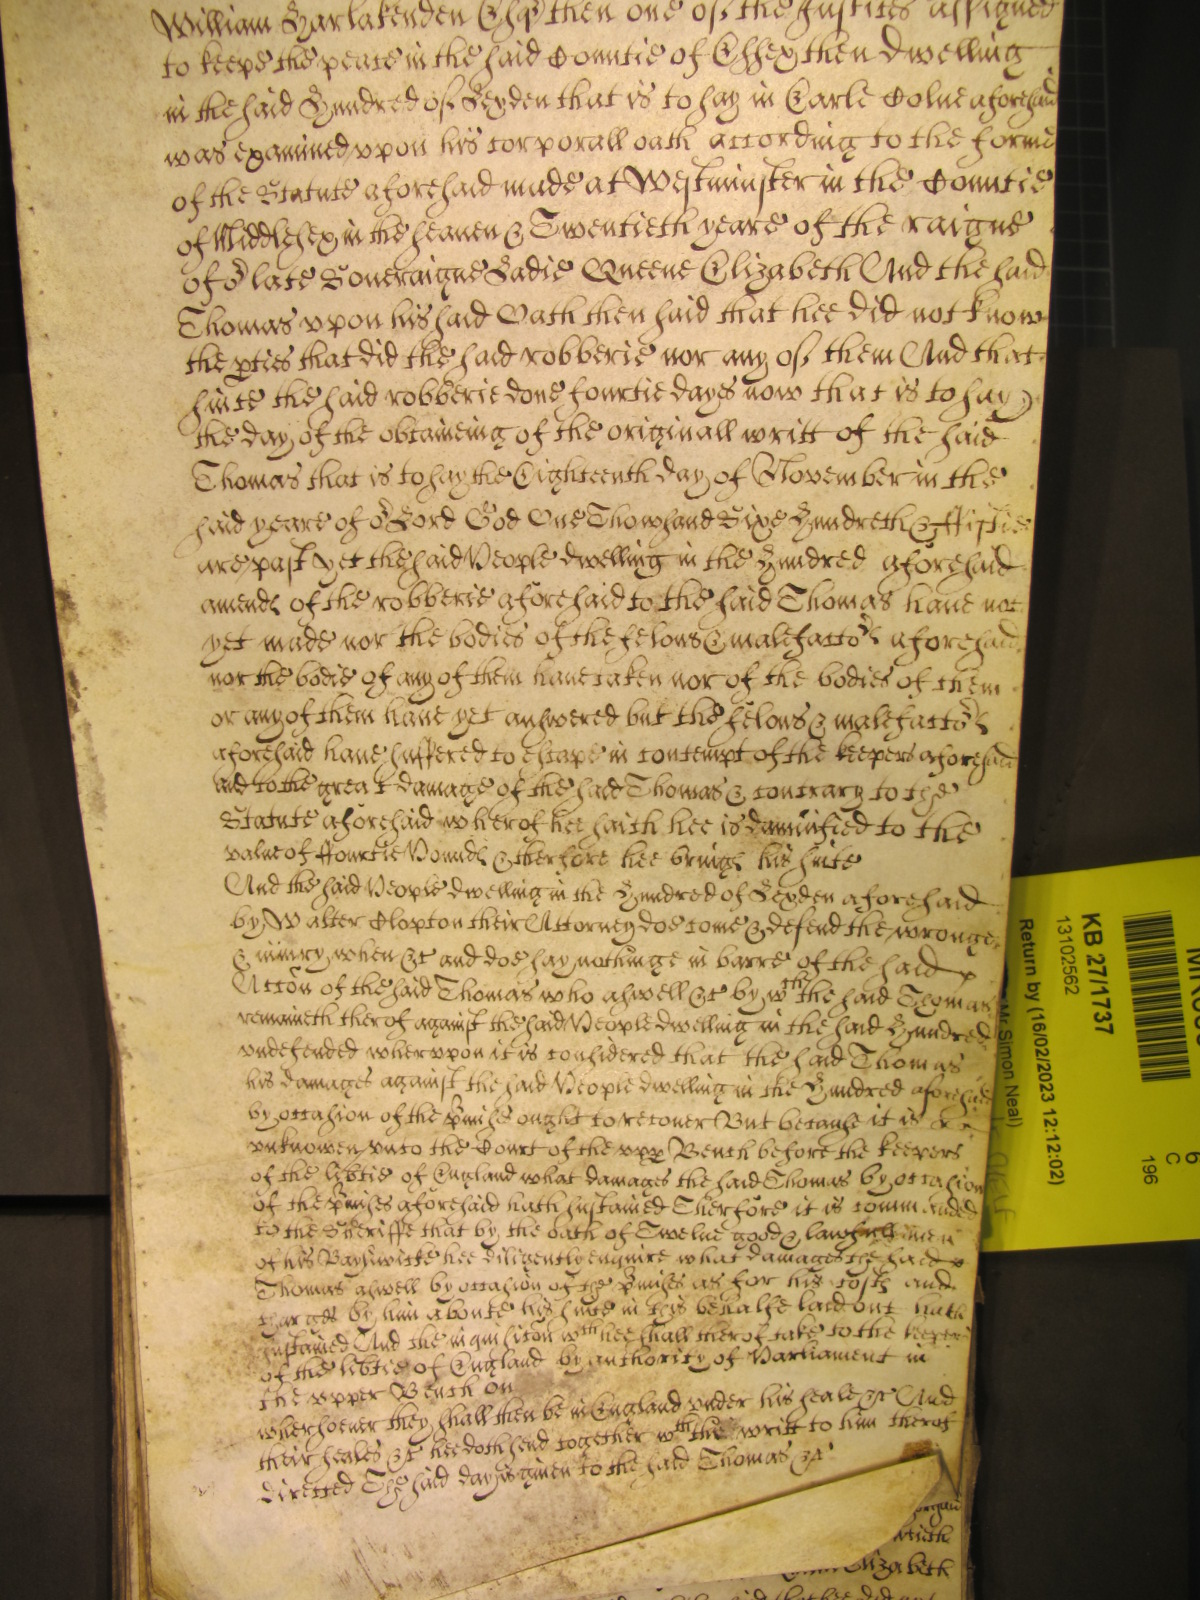 William Harlakenden Esqr then one of the Justices assigned
to keepe the peace in the said Countie of Essex then dwelling
in the said Hundred of Lexden that is to say in Earle Colne aforesaid
was examined vpon his corporall oath according to the forme
of the Statute aforesaid made at Westminster in the Countie
of Middlesex in the seauen & Twentieth yeare of the raigne
of or late Soueraigne Ladie Queene Elizabeth And the said
Thomas vpon his said Oath then said that hee did not know
the pties that did the said robberie nor any of them And that
since the said robberie done fourtie dayes now that is to say
the day of the obtaineing of the originall writt of the said
Thomas that is to say the Eighteenth day of November in the
said yeare of or Lord God One Thowsand Sixe Hundreth & ffiftie
are past yet the said People dwelling in the Hundred aforesaid
amends of the robberie aforesaid to the said Thomas haue not
yet made nor the bodies of the felons & malefactors aforesaid
nor the bodie of any of them haue taken nor of the bodies of them
or any of them haue yet answered but the felons & malefactors
aforesaid haue suffered to escape in contempt of the keepers aforesaid
and to the great damage of the said Thomas & contrary to the
Statute aforesaid wherof hee saith hee is damnified to the
value of ffourtie Pounds & therfore hee brings his suite
And the said People dwelling in the Hundred of Lexden aforesaid
by Walter Clopton their Attorney doe come & defend the wronge
& iniury when &c and doe say nothinge in barre of the said
Accon of the said Thomas who aswell &c by wch the said Thomas
remaineth therof against the said People dwelling in the said Hundred
vndefended whervpon it is considered that the said Thomas
his damages against the said People dwelling in the Hundred aforesaid
by occasion of the pmises ought to recouer But because it is
vnknowen vnto the Court of the vpp Bench before the keepers
of the libtie of England what damages the said Thomas by occasion
of the pmises aforesaid hath sustained Therfore it is commanded
to the Sheriffe that by the oath of Twelue good & lawfull men
of his Baylywicke hee diligently enquire what damages the said
Thomas aswell by occasion of the pmises as for his costs and
charges by him aboute his suite in this behalfe laid out hath
sustained And the inquisicon wch hee shall therof take to the keepers
of the libtie of England by authority of Parliament in
the vpper Bench on
whersoeuer they shall then be in England vnder his seale &c And
their seales &c hee doth send together wth the writt to him therof
directed The said day is giuen to the said Thomas &c
Elizabeth
KB 27/1737
13102562
Return by (16/02/2023 12:12:02)
Mr Simon Neal)
C
196